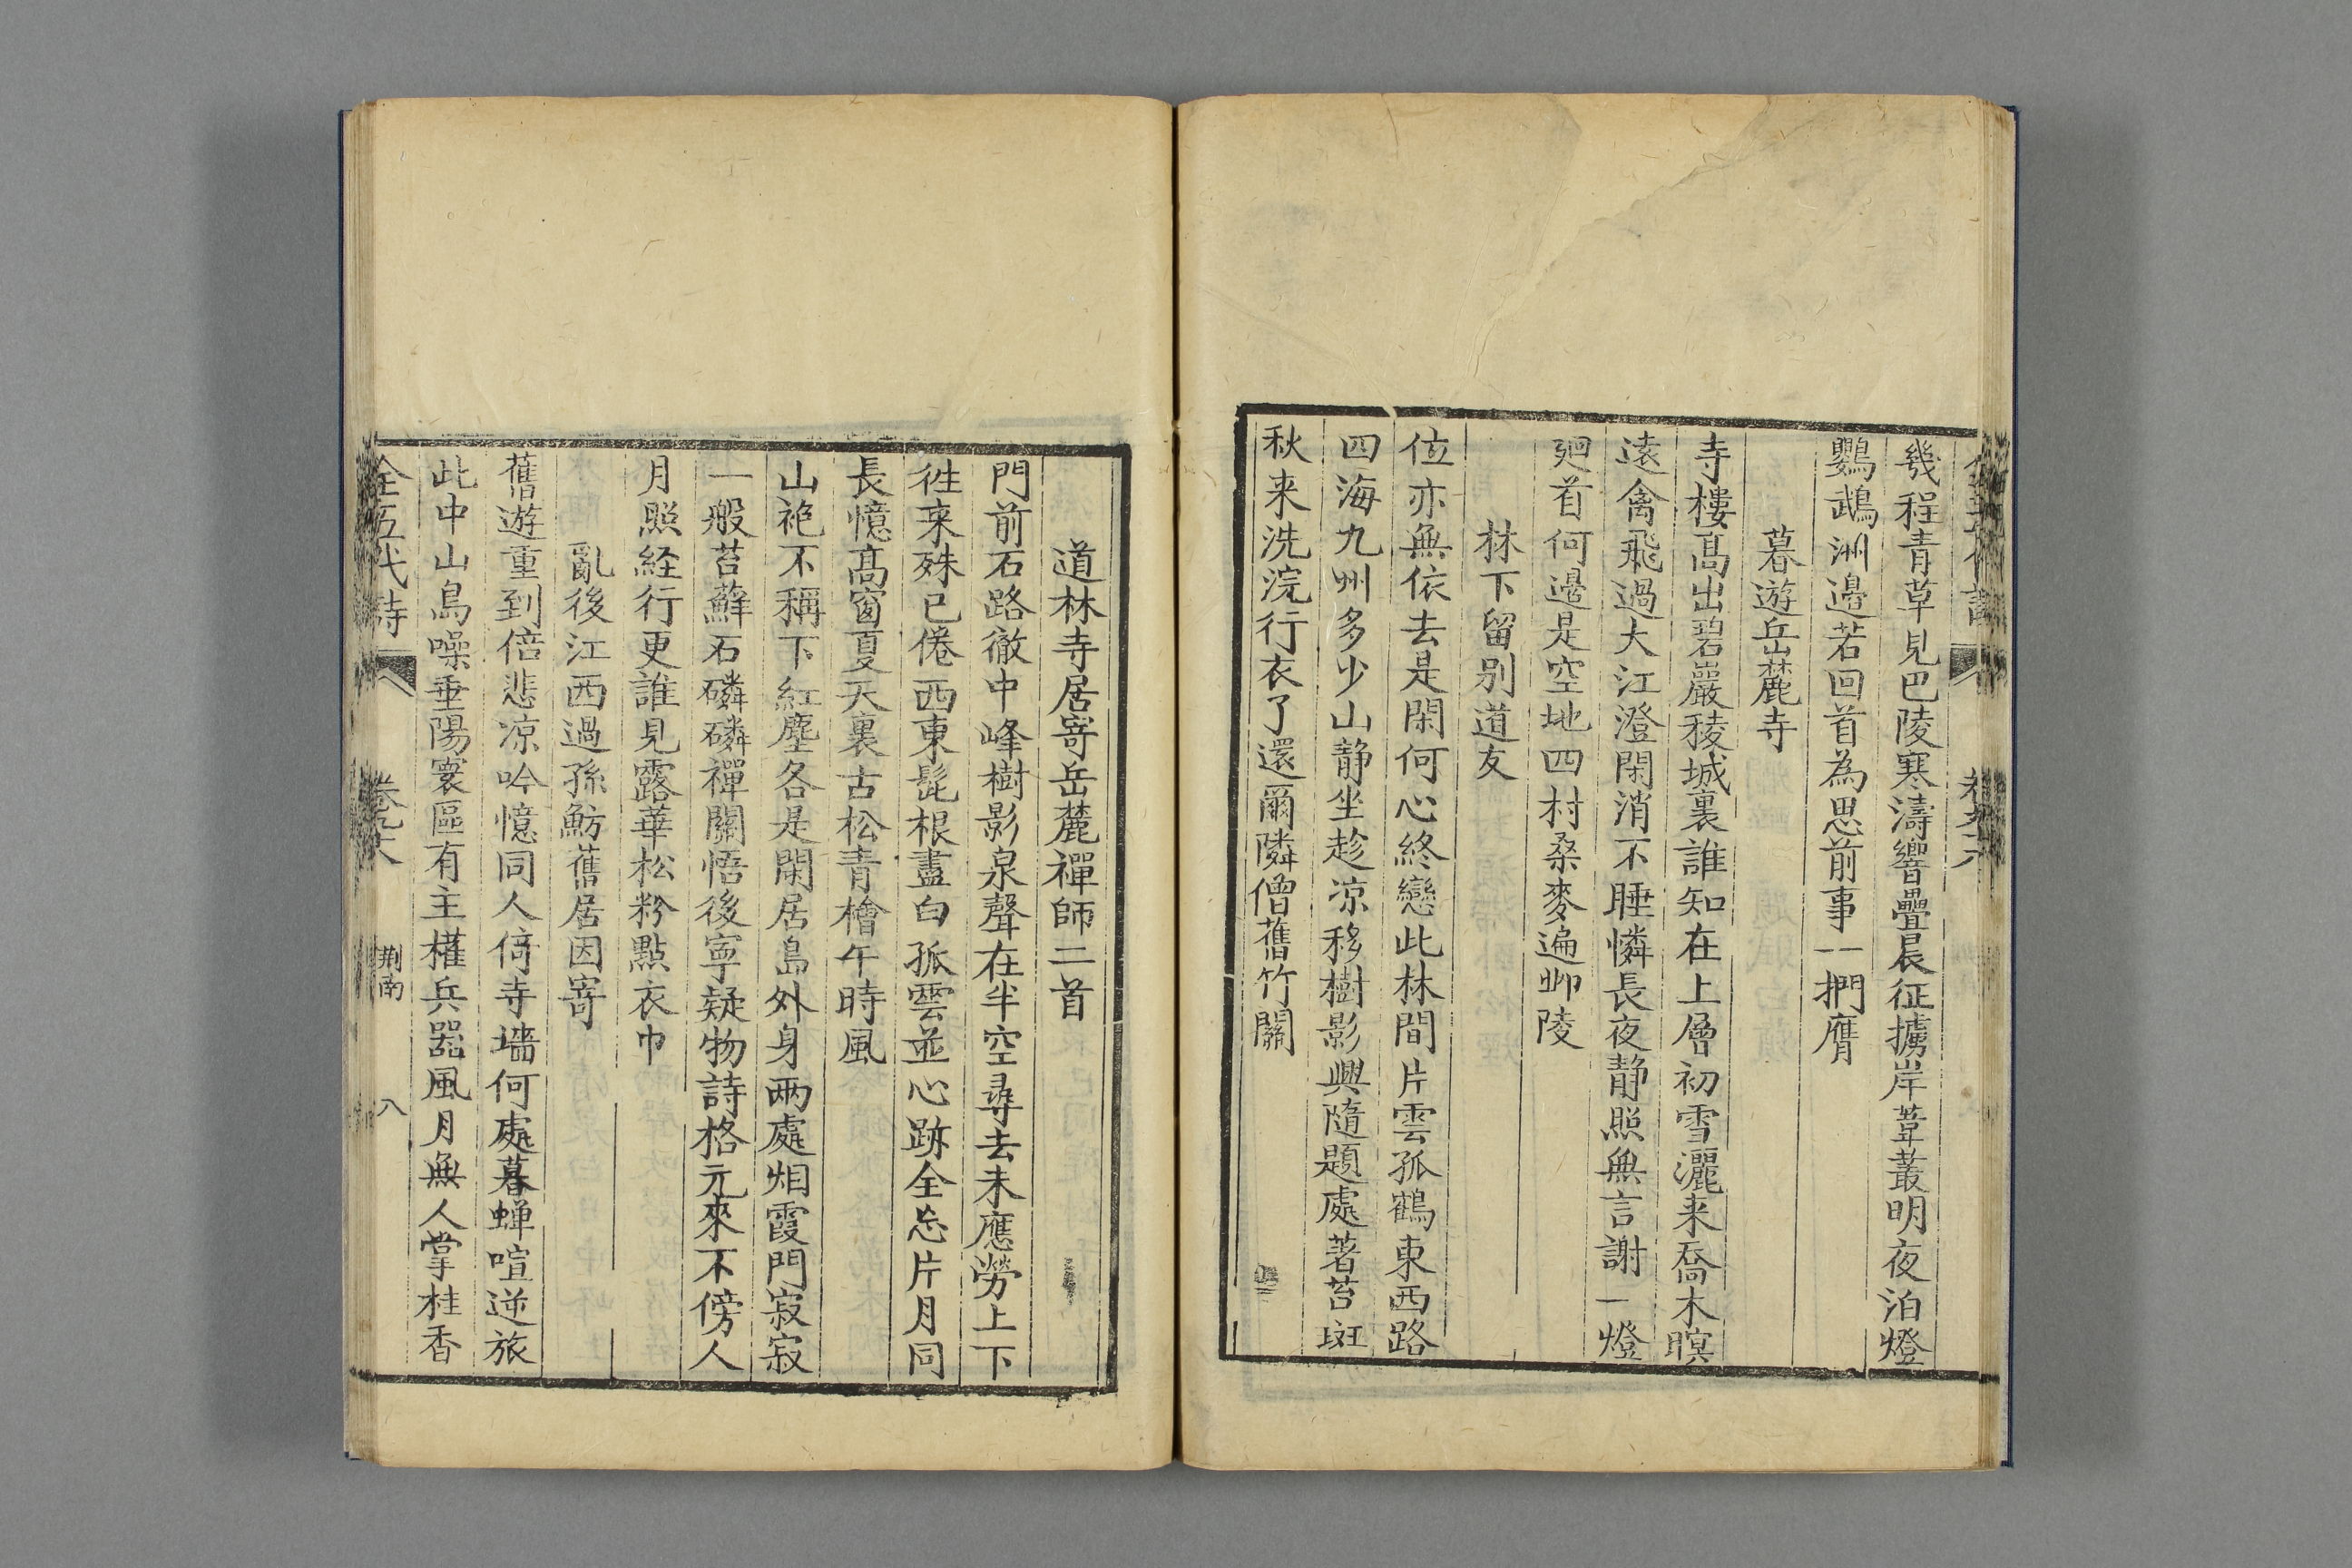 幾程青草見巴陵寒濤響疊晨征擄岸葦叢明夜泊燈
鸚鵡洲邉若回首為思前事一捫膺
暮遊岳麓寺
寺樓髙出碧巖稜城裏誰知在上層初雪灑来喬木暝
遠禽飛過大江澄閑消不睡憐長夜静照無言謝一燈
廻首何邉是空地四村桑麥遍丱陵
林下留别道友
位亦無依去是閑何心終戀此林間片雲孤鶴東西路
四海九州多少山静坐趁凉移樹影興隨題處著苔斑
秋来洗浣行衣了還爾隣僧舊竹關
道林寺居寄岳麓禪師二首
門前石路徹中峰樹影泉聲在半空尋去未應勞上下
徃来殊已倦西東髭根盡白孤雲並心跡全忘片月同
長憶髙窗夏天裏古松青檜午時風
山袍不稱下紅塵各是閑居島外身兩處烟霞門寂寂
一般苔蘚石磷磷禪關悟後寧疑物詩格元來不傍人
月照経行更誰見露華松粉點衣巾
亂後江西過孫魴舊居因寄
舊遊重到倍悲凉吟憶同人倚寺墻何處暮蟬喧逆旅
此中山鳥噪垂陽寰區有主權兵器風月無人掌桂香
全五代詩 荆南 八